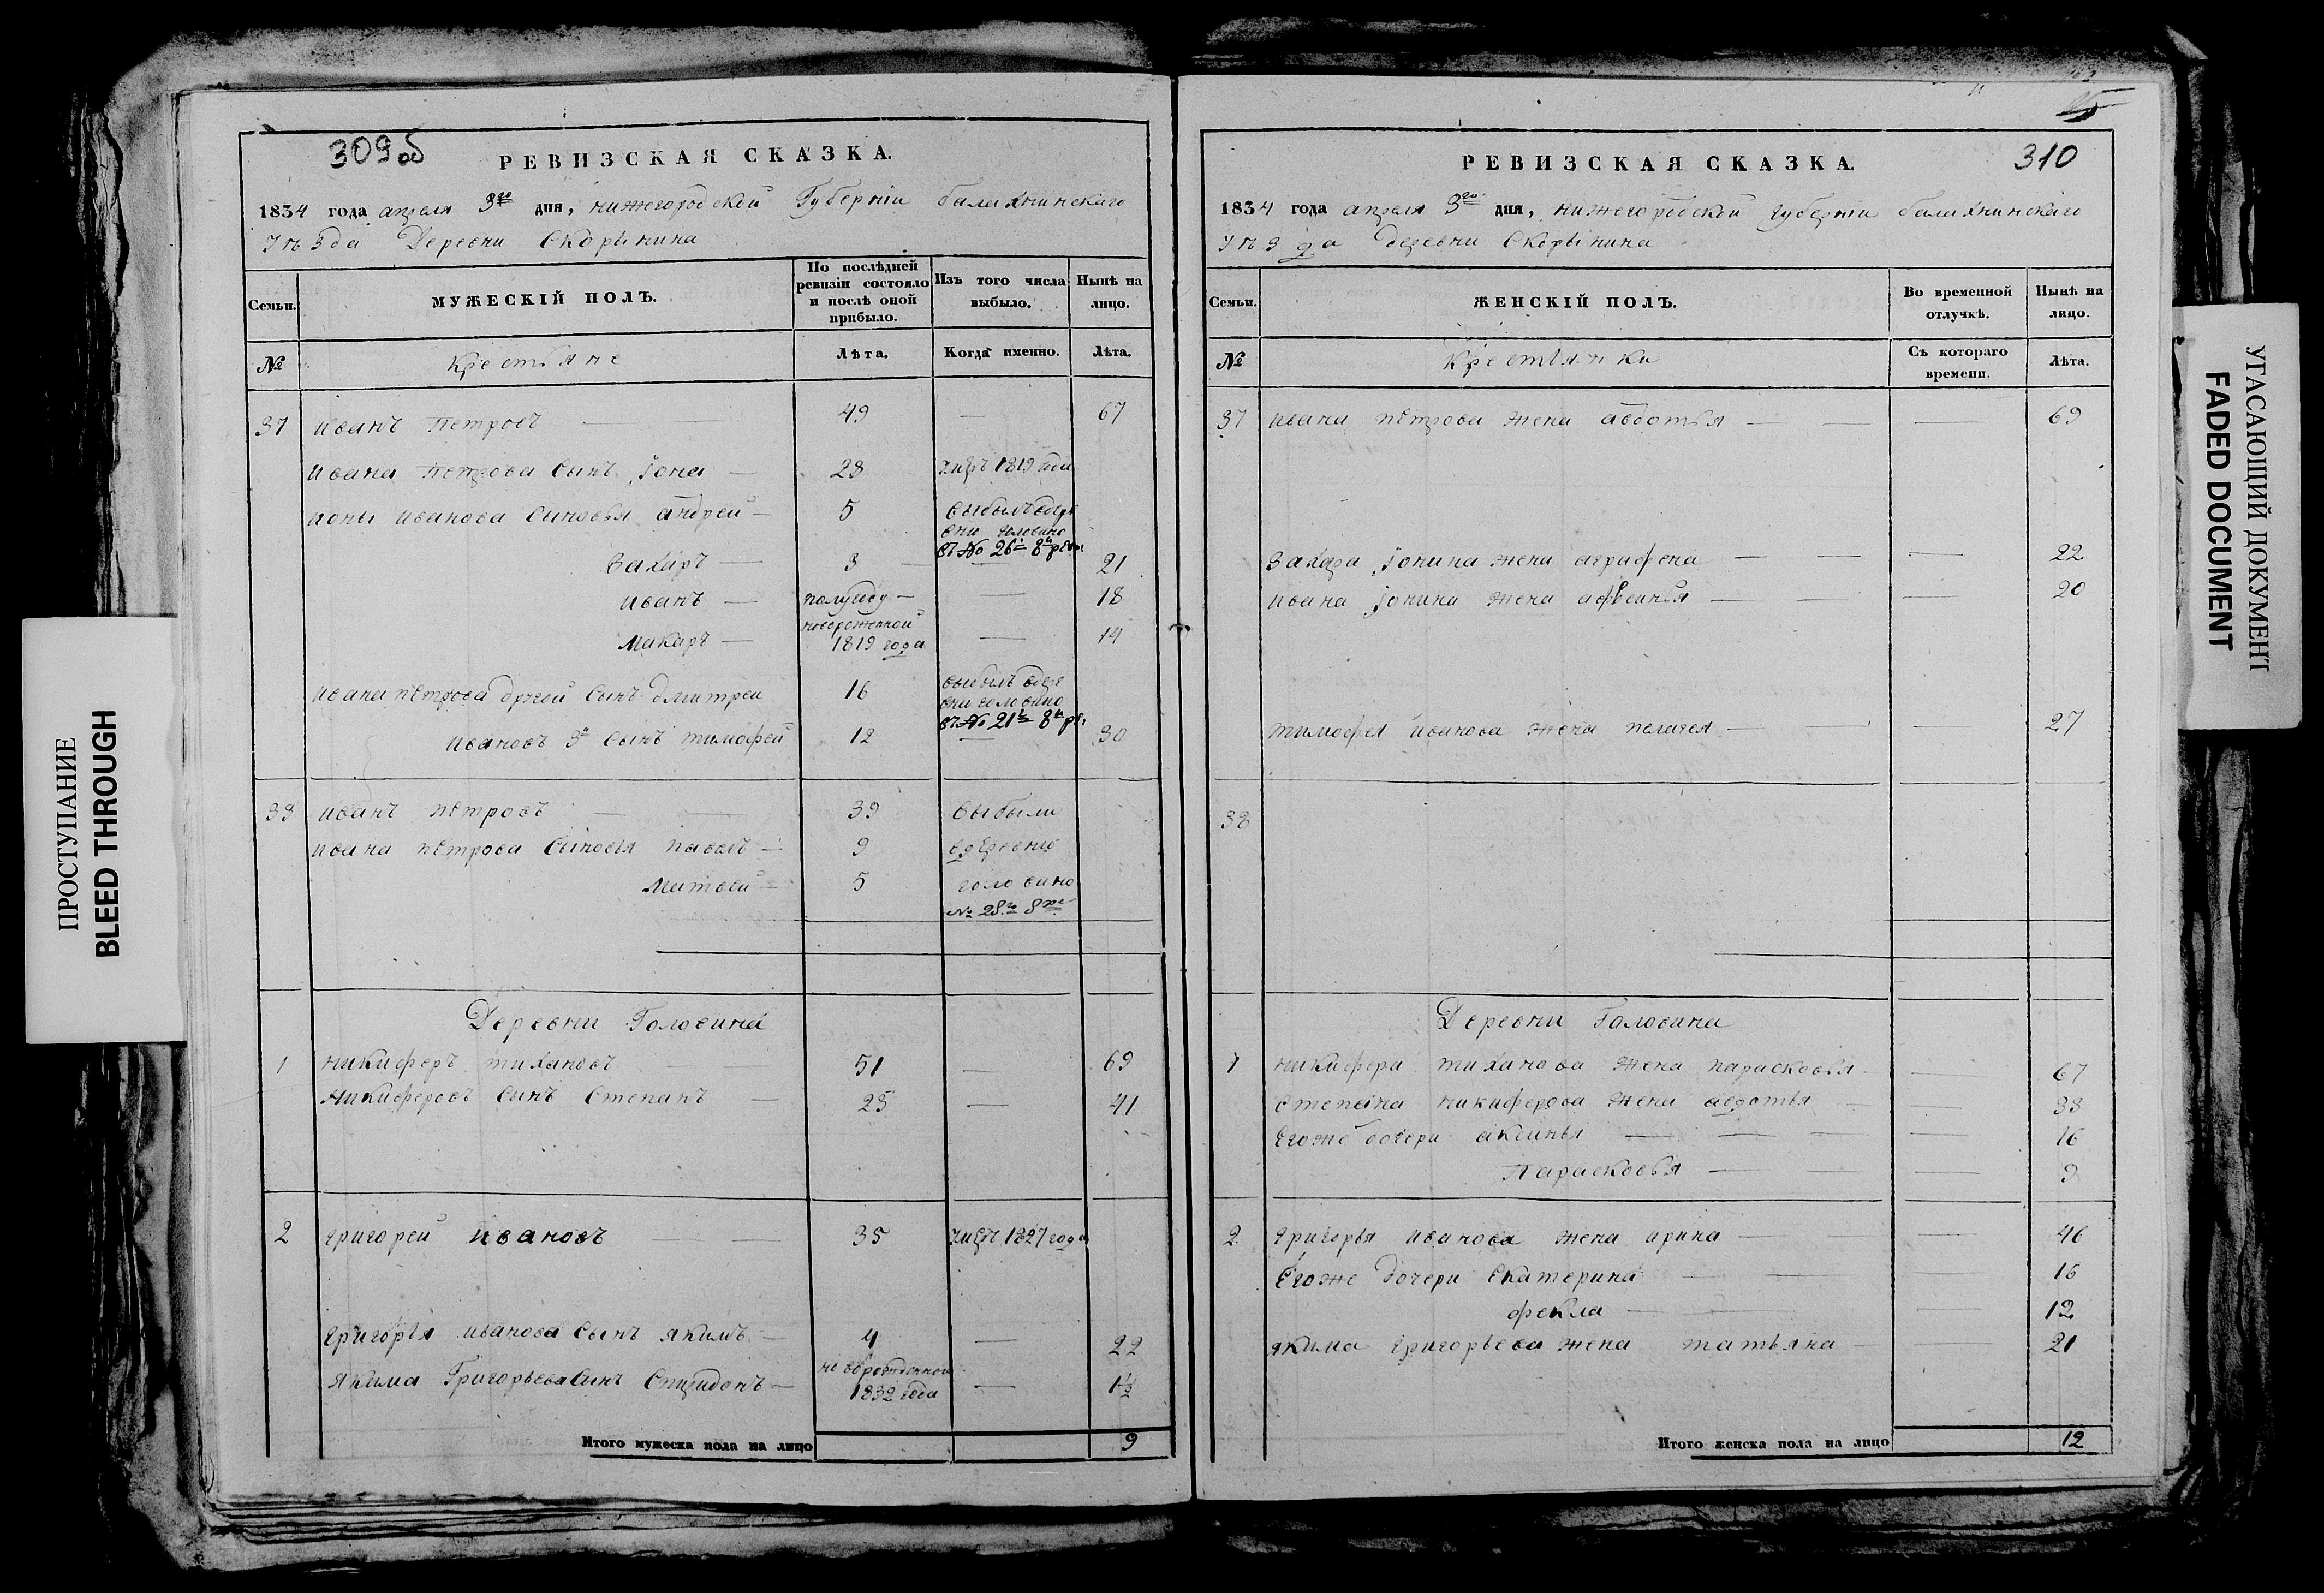 309 об
РЕВИЗСКАЯ СКАЗКА.
1834 года апреля 3го дня, нижегородской Губерніи балахнинскаго
Уѣзда Деревни Скорынина
Семьи.
МУЖЕСКІЙ ПОЛЪ.
По послѣдней
ревизіи состояло
и послѣ оной
прибыло.
Изъ того числа
выбыло.
Нынѣ на
лицо.
№
Крестьяне
Лѣта.
Когда именно.
Лѣта.
37 иванъ петровъ — 49 — 67
ивана петрова сынъ Іона — 28 умеръ 1819 года
ионы иванова сыновья андрей — 5 выбылъ в дере
вни головино
въ № 26й 8й реви
Захаръ — 3 — 21
иванъ — полугоду — — 18
новорожденной
макаръ — 1819 года — 14
ивана петрова другой сынъ дмитрей 16 выбылъ в дере
вни головино
въ № 21й 8й ре
ивановъ 3й сынъ тимофей 12 — 30
38 иванъ петровъ — 39 выбыли
ивана петрова сыновья павелъ — 9 в деревню
матвей — 5 головино
№ 28го 8й ре
Деревни Головина
1 никифоръ тихановъ 51 — 69
никифоровъ сынъ степанъ — 23 — 41
2 григорей ивановъ 35 умеръ 1827 года
григорья иванова сынъ якимъ — 4 — 22
новорожденной
якима Григорьева сынъ Спиридонъ — 1832 года — 1½
Итого мужеска пола на лицо 9
310
РЕВИЗСКАЯ СКАЗКА.
1834 года апреля 3го дня, нижегородской губерніи балахнинскаго
Уѣзда деревни Скорынина
Семьи.
ЖЕНСКІЙ ПОЛЪ.
Во временной
отлучкѣ.
Нынѣ на
лицо.
№
Крестьянки
Съ котораго
времени.
Лѣта.
37 ивана петрова жена авдотья — — — 69
Захара Іонина жена аграфена — — — 22
ивана Іонина жена афросинья — — — 20
тимофея иванова жена пелагея — — — 27
38
Деревни Головина
1 никифора тиханова жена парасковья — — 67
степана никифорова жена авдотья — — 38
егоже дочери аксинья — — — 16
Парасковья — — — 9
2 григорья иванова жена ирина — — 46
Егоже дочери Екатерина — — — 16
фекла — — — 12
якима григорьева жена татьяна — — 21
Итого женска пола на лицо 12
ПРОСТУПАНИЕ
BLEED THROUGH
УГАСАЮЩИЙ ДОКУМЕНТ
FADED DOCUMENT